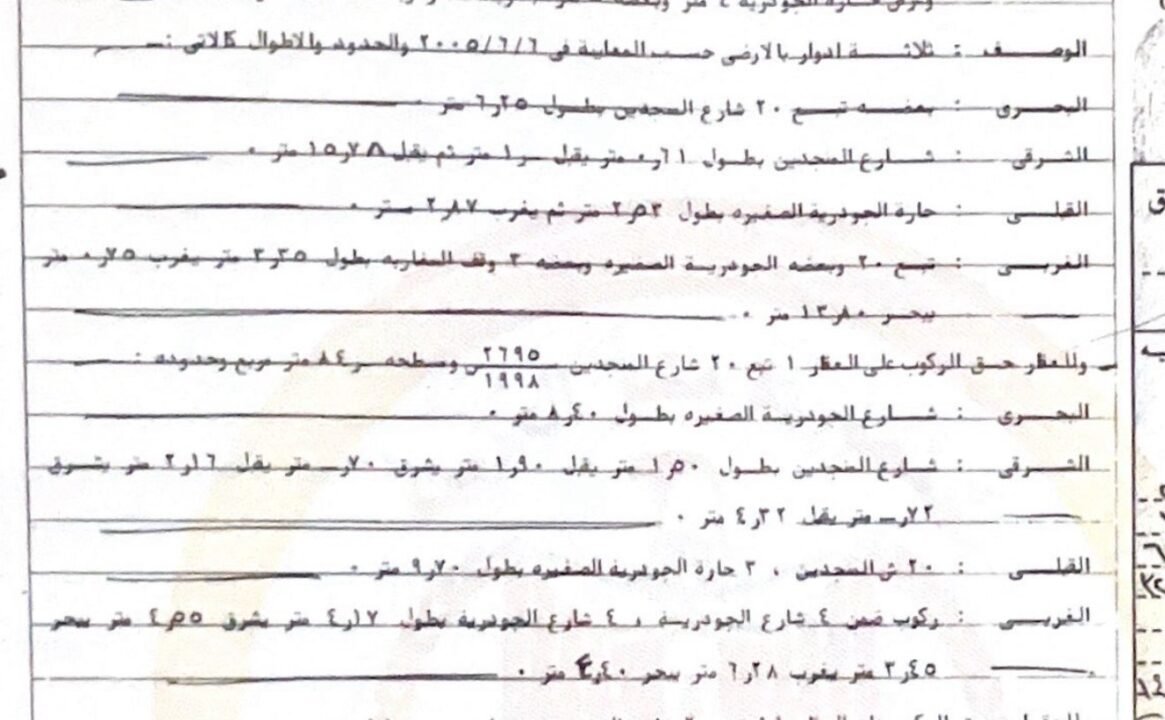 الوصف : ثلاثة ادوار بالارضى حسب المعاينة فى ٢٠٠٥/٦/٦ والحدود والاطوال كالاتى :ــ
البحرى : بعضه تبع ٢٠ شارع المجدين بطول ٦٫٢٥ متر ٠
الشرقى : شارع المجدين بطول ٠٫٦١ متر يقبل ١٫ــ متر ثم يقبل ١٥٫٧٨ متر ٠
القبلى : حارة الجودرية الصغيره بطول ٢٫٥٣ متر ثم يغرب ٢٫٨٧ متر ٠
الغربى : تبع ٢٠ وبعضه الجودرية الصغيره وبعضه ٣ وقف المغاربه بطول ٣٫٣٥ متر يغرب ٠٫٧٥ متر
يبحر ١٣٫٨٠ متر ٠
ــ وللعقار حق الركوب على العقار ١ تبع ٢٠ شارع المجدين ٢٦٩٥/١٩٩٨ س وسطحه ٨٤٫ــ متر مربع وحدوده :
البحرى : شارع الجودرية الصغيره بطول ٨٫٤٠ متر ٠
الشرقى : شارع المجدين بطول ١٫٥٠ متر يقبل ١٫٩٠ متر يشرق ــ٫٧٠ متر يقبل ٢٫١٦ متر يشرق
ــ٫٧٢ متر يقبل ٤٫٣٢ متر ٠
القبلى : ٢٠ ش المجدين ، ٣ حارة الجودرية الصغيره بطول ٩٫٧٠ متر ٠
الغربى : ركوب ضمن ٤ شارع الجودرية ، ٤ شارع الجودرية بطول ٤٫١٧ متر يشرق ٤٫٥٥ متر يبحر
٣٫٤٥ متر يغرب ٦٫٢٨ متر يبحر ٤٫٤٠ متر ٠